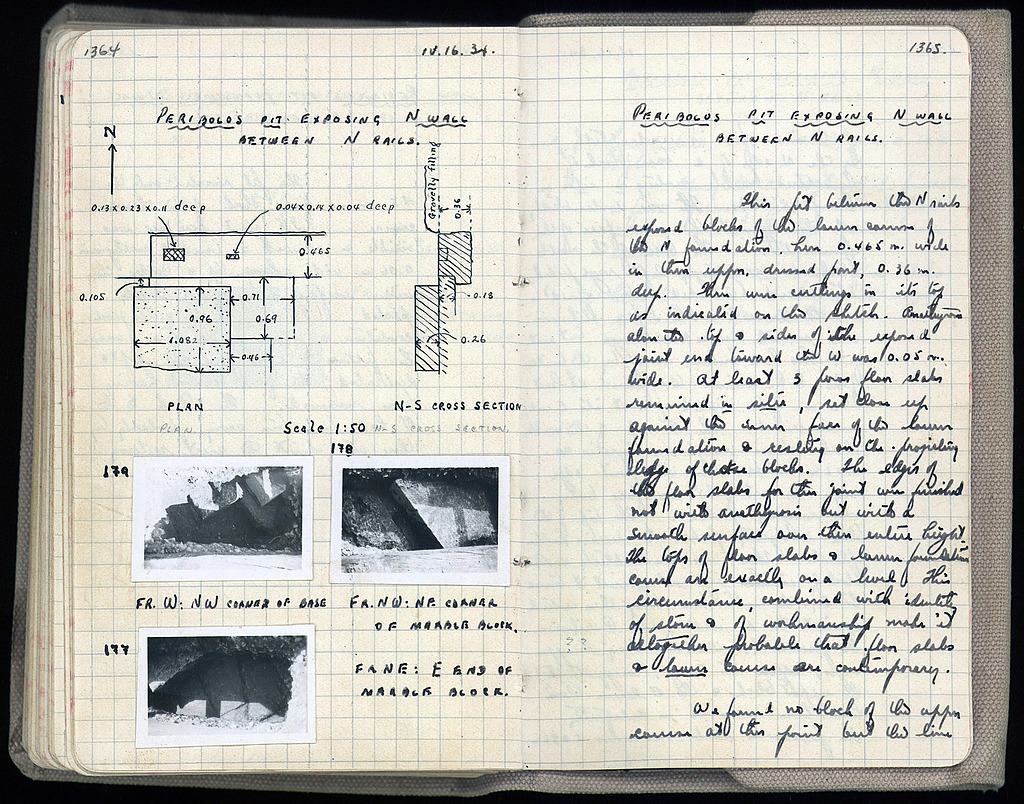 1364
IV.16.34.
PERIBOLOS PIT EXPOSING N WALL
BETWEEN N RAILS.
N
0.13 x 0.23 x 0.11 deep
0.04 x 0.14 x 0.04 deep
Gravelly filling
0.36
0.465
0.105
0.71
0.96
0.69
1.082
0.46
0.18
0.26
PLAN
N-S CROSS SECTION
PLAN
Scale 1:50
N-S CROSS SECTION.
179
178
FR. W: NW CORNER OF BASE
FR. NW: NE CORNER
OF MARBLE BLOCK.
177
FR NE: E END OF
MARBLE BLOCK.
1365.
PERIBOLOS PIT EXPOSING N WALL
BETWEEN N RAILS.
This pit between the N rails
exposed blocks of the lower course of
the N foundation, here 0.465 m. wide
in their upper, dressed part, 0.36 m.
deep. There were cuttings in its top
as indicated on the sketch. Anathyrosis
along the top & sides of the exposed
joint end toward the W was 0.05 m.
wide. At least 3 poros floor slabs
remained in situ, set close up
against the inner face of the lower
foundation & resting on the projecting
ledge of these blocks. The edges of
the floor slabs for this joint were finished
not with anathyrosis but with a
smooth surface over their entire height.
The tops of floor slabs & lower foundation
course are exactly on a level. This
circumstance, combined with identity
of stone & of workmanship make it
altogether probable that floor slabs
& lower course are contemporary.
We found no block of the upper
course at this point but the line
? ?